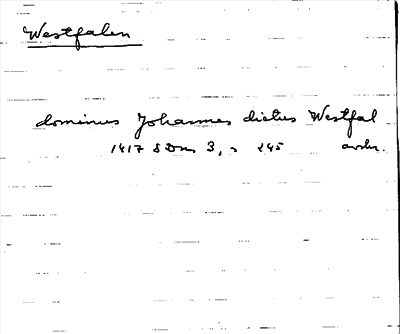 Westfalen
dominus Johannes dictus Westfal
1417 8 Dm 3, 245